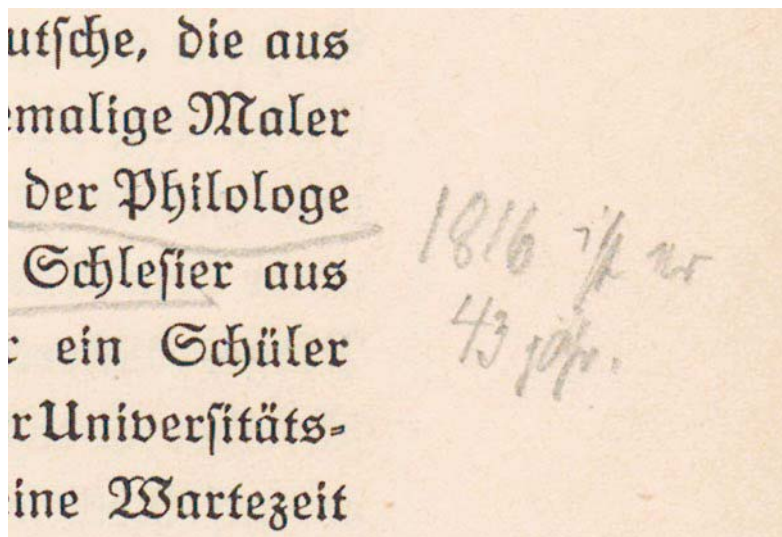 utsche, die aus
emalige Maler
der Philologe
Schlesier aus
r ein Schüler
r Universitäts-
ine Wartezeit
1816 ist er
43 jähr.